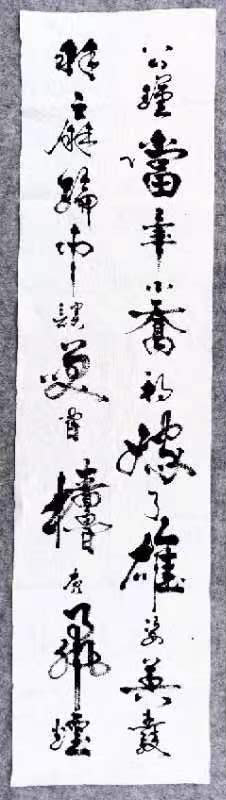 公瑾當年小喬初嫁了雄姿英發
羽扇綸巾談笑間檣灰飛煙